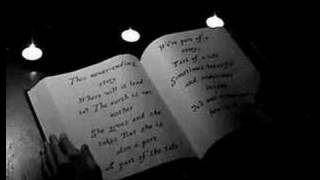 This never-ending
story
Where will it lead
to? The earth is my
mother
She gives and she
takes But she is
also a part
A part of the tale
We're part of a
story,
Part of a tale
Sometimes beautiful
and sometimes